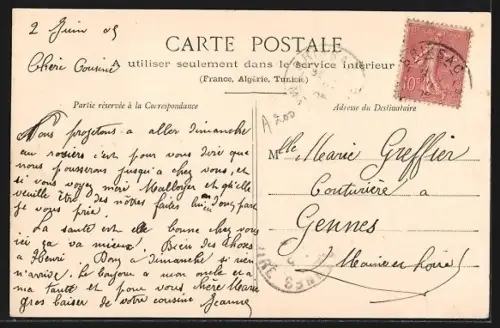 2 Juin 05
CARTE POSTALE
Chère Cousine
A utiliser seulement dans le service intérieur
(France, Algérie, Tunisie)
Partie réservée à la Correspondance
Adresse du Destinataire
A 200
Nous projetons a aller dimanche
au rosiers c'est pour vous dire que
nous pousserons jusqu'a chez vous, et
si vous voyez mère Malloyer et qu'elle
veuille être des nôtres faites lui donc part
je vous prie.
La santé est elle bonne chez vous
ici ça va mieux. Bien des choses
a Henri Donc a dimanche si rien
n'arrive. Le bonjour a mon oncle et a
ma tante et pour vous chère Marie
gros baiser de votre cousine Jeanne
Mlle Marie Greffier
Couturière a
Gennes
Maine et Loire
BRISSAC
10